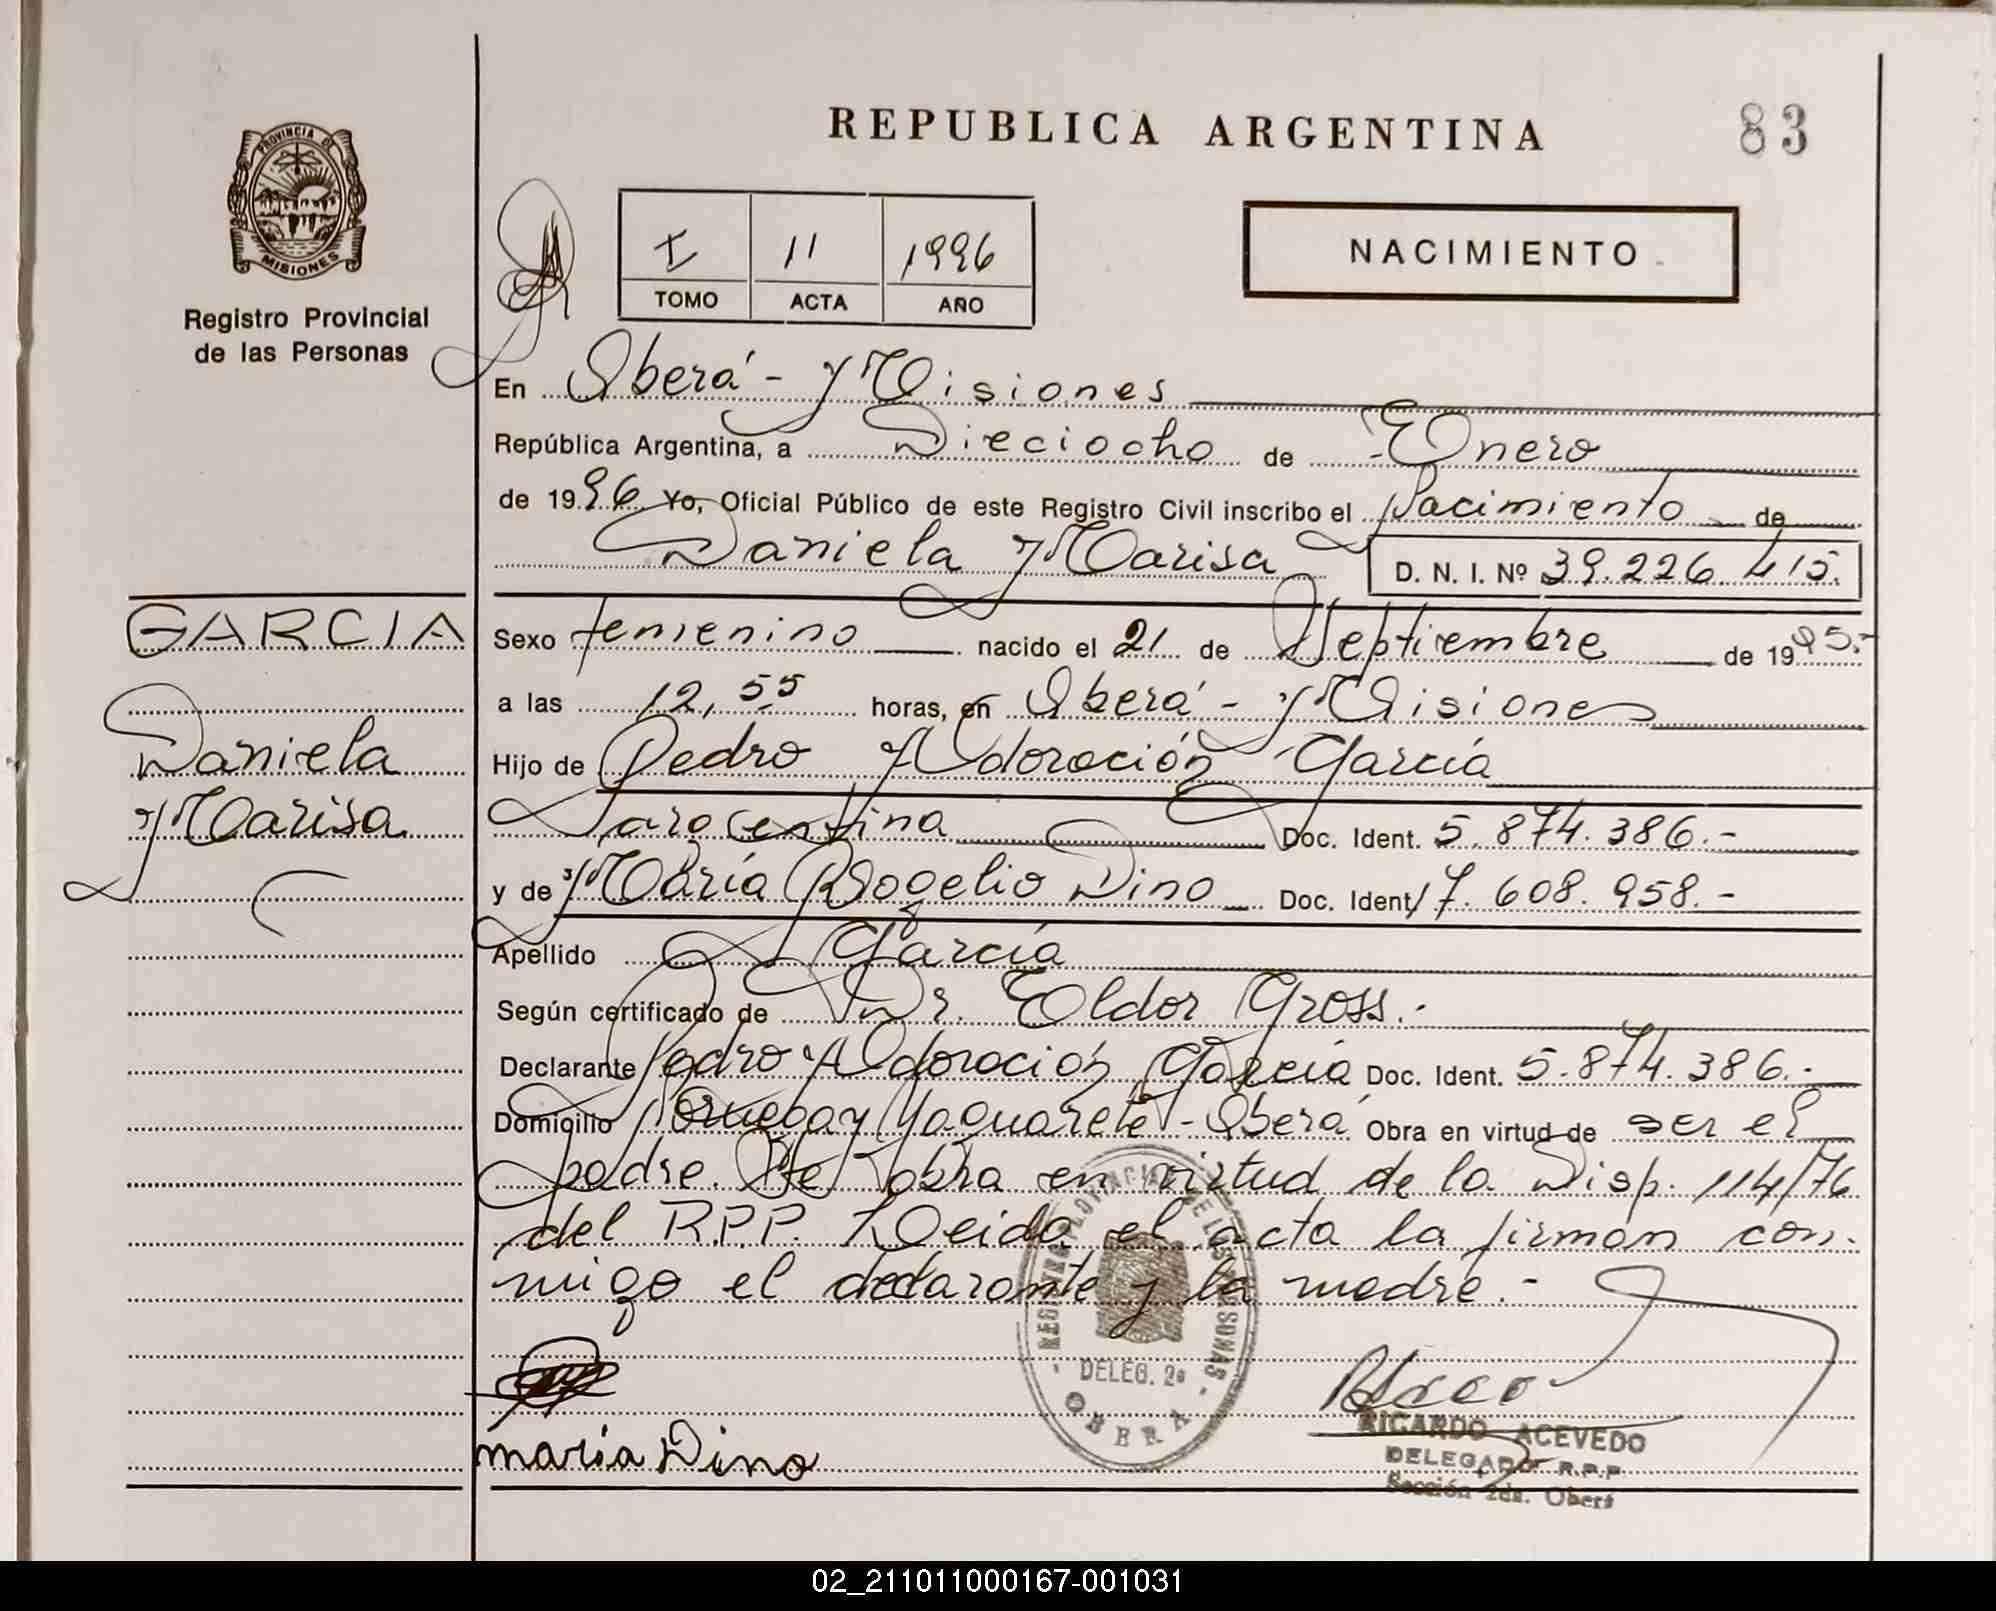 REPUBLICA ARGENTINA
83
PROVINCIA DE
MISIONES
Registro Provincial
de las Personas
I 11 1996
TOMO ACTA AÑO
NACIMIENTO
En Oberá - Misiones
República Argentina, a Dieciocho de Enero
de 1996 Yo, Oficial Público de este Registro Civil inscribo el Nacimiento de
Daniela Marisa D. N. I. Nº 39.226.415.
GARCIA
Daniela
Marisa
Sexo femenino nacido el 21 de Septiembre de 1995.-
a las 12,55 horas, en Oberá - Misiones
Hijo de Pedro Adoración García
argentina Doc. Ident. 5.874.386.-
y de María Rogelio Dino Doc. Ident 17.608.958.-
Apellido García
Según certificado de Dr. Eldor Gross.-
Declarante Pedro Adoración García Doc. Ident. 5.874.386.-
Domicilio Yaguareté - Oberá Obra en virtud de ser el
padre. Se labra en virtud de la Disp. 114/76
del R.P.P. Leida el acta la firman con-
migo el declarante y la madre.-
REGISTRO PROVINCIAL DE LAS PERSONAS
DELEG. 2ª
OBERA
maría Dino
RICARDO ACEVEDO
DELEGADO R.P.P.
Sección 2da. Oberá
02_211011000167-001031